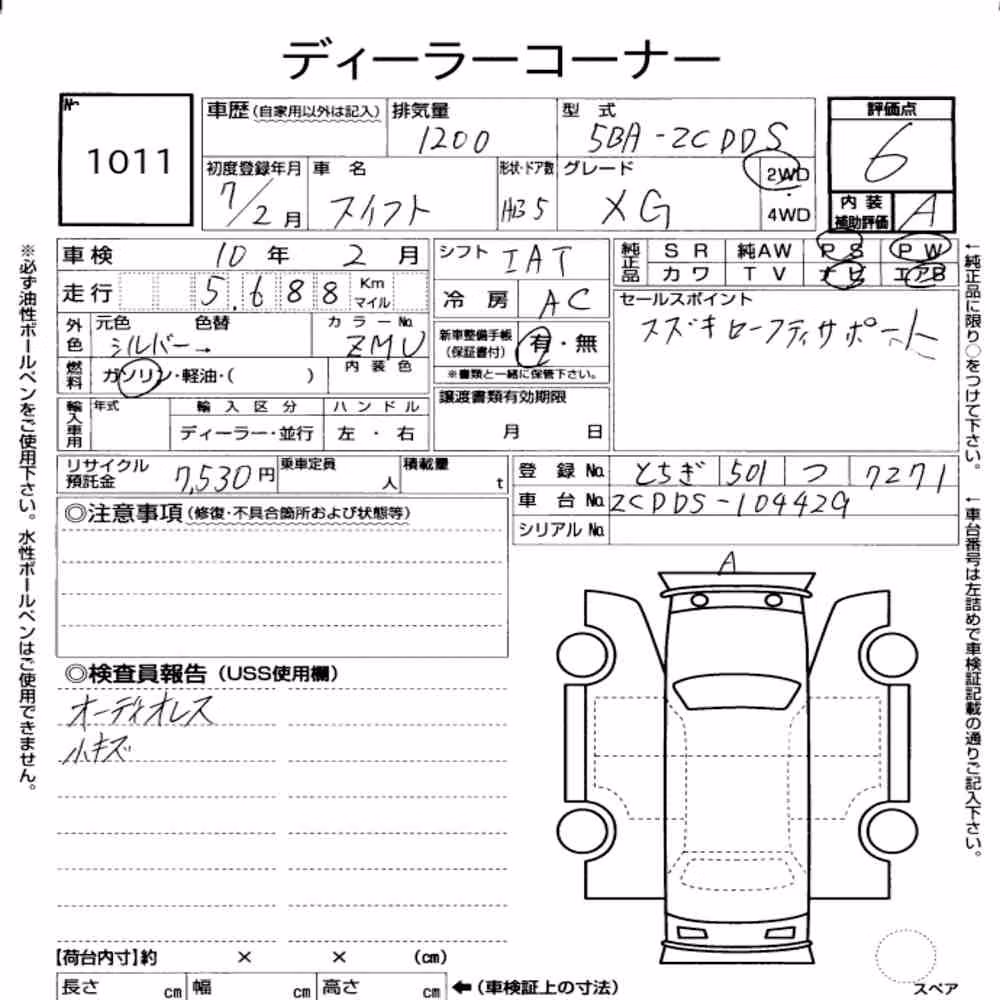 ディーラーコーナー
№
1011
車歴(自家用以外は記入)
排気量
1200
型 式
5BA-ZCDDS
評価点
6
初度登録年月
7/2月
車 名
スイフト
形状・ドア数
HB 5
グレード
XG
2WD
・
4WD
内装
補助評価
A
車検 10年 2月
走行 5,688 Km
マイル
外色
元色 色替
シルバー→
カラーNo.
ZMU
燃料
ガソリン・軽油・( )
内装色
輸入車用
年式
輸入区分
ディーラー・並行
ハンドル
左 ・ 右
シフト IAT
冷房 AC
新車整備手帳
(保証書付)
有・無
※書類と一緒に保管下さい。
譲渡書類有効期限
月 日
純正品
SR 純AW PS PW
カワ TV ナビ エアB
セールスポイント
スズキセーフティサポート
リサイクル
預託金
7,530円
乗車定員
人
積載量
t
登録No. とちぎ 501 つ 7271
車台No. ZCDDS-104429
シリアルNo.
◎注意事項(修復・不具合箇所および状態等)
A
◎検査員報告(USS使用欄)
オーディオレス
小キズ
【荷台内寸】約 × × (cm)
長さ cm 幅 cm 高さ cm ←(車検証上の寸法)
スペア
※必ず油性ボールペンをご使用下さい。水性ボールペンはご使用できません。
←純正品に限り○をつけて下さい。
←車台番号は左詰めで車検証記載の通りご記入下さい。